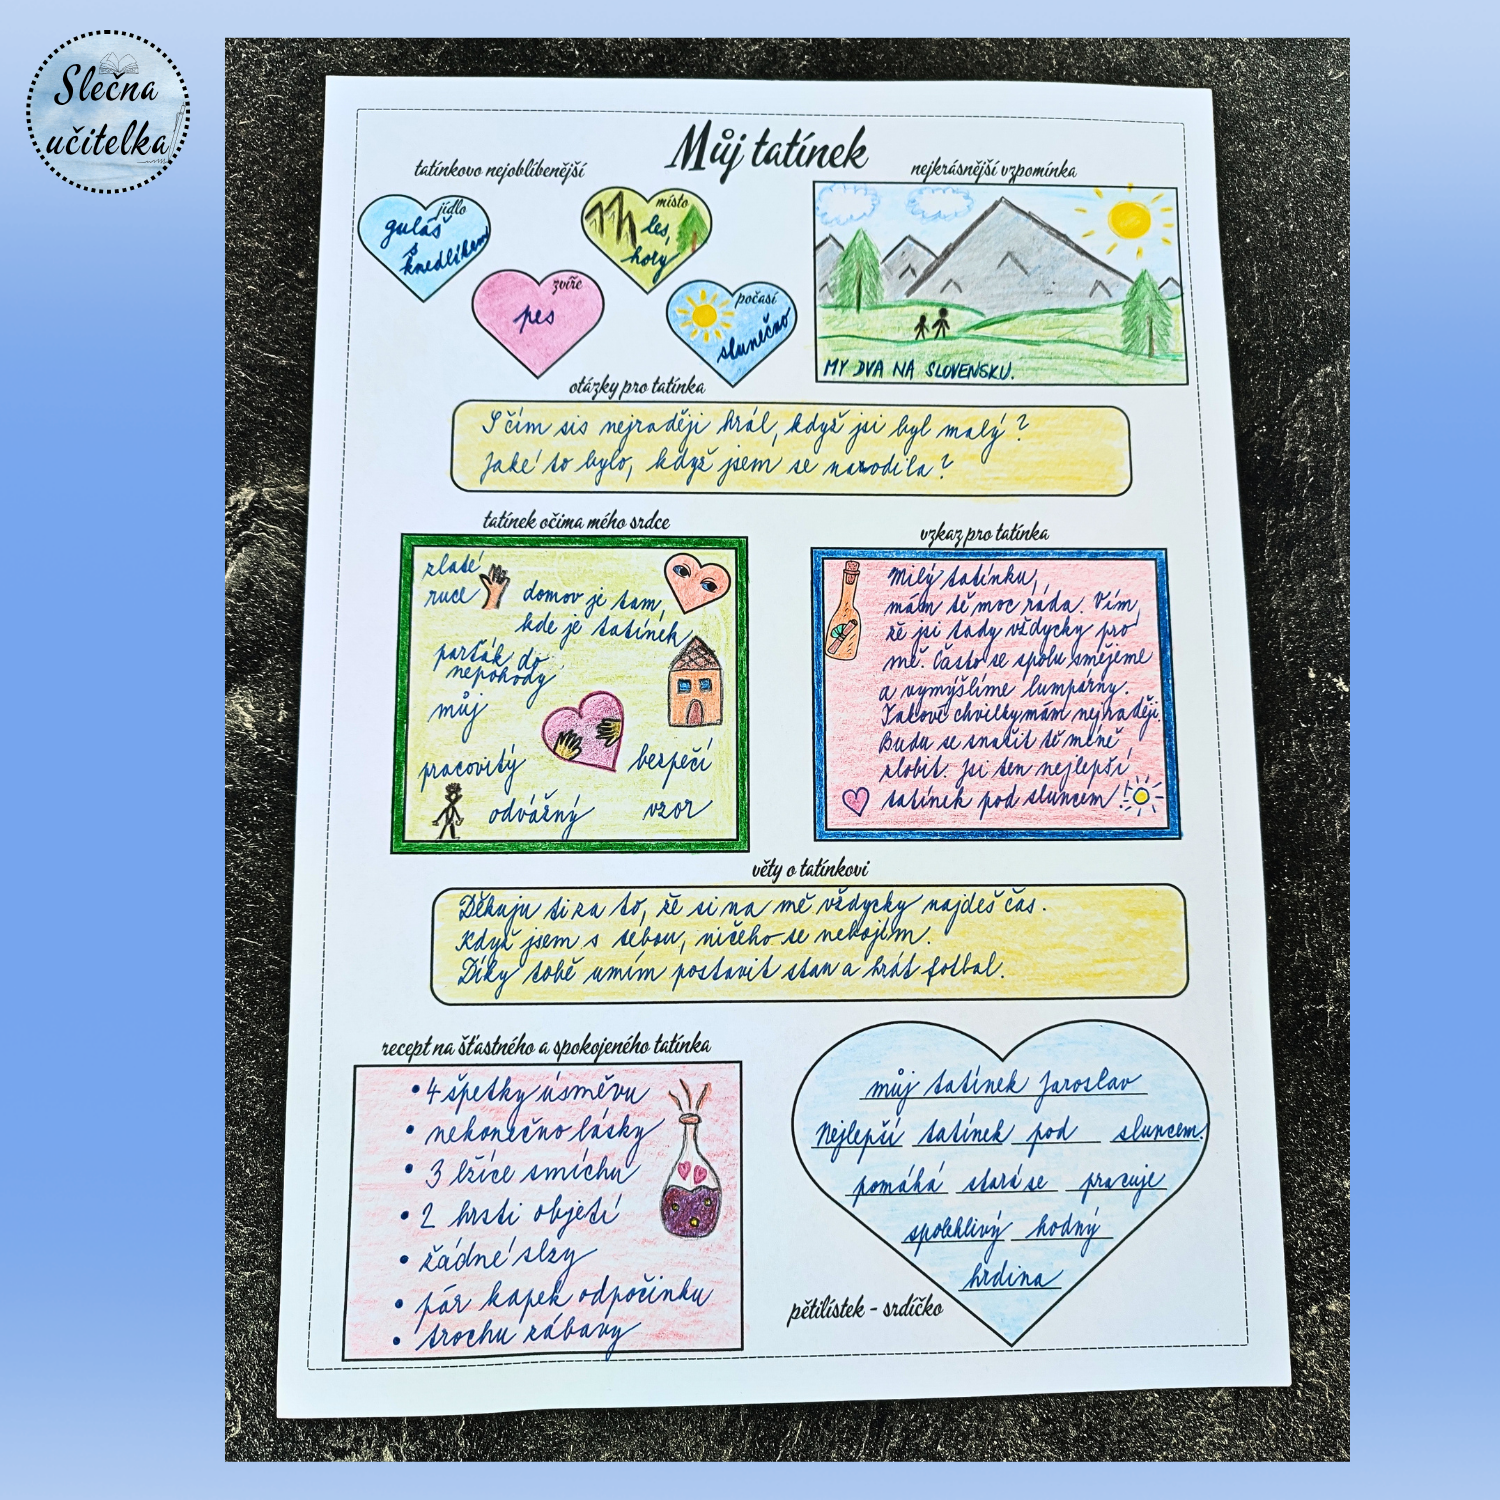 Slečna
učitelka
Můj tatínek
tatínkovo nejoblíbenější
jídlo
guláš
s
knedlíkem
místo
les,
hory
zvíře
pes
počasí
slunečno
nejkrásnější vzpomínka
MY DVA NA SLOVENSKU.
otázky pro tatínka
S čím sis nejraději hrál, když jsi byl malý?
Jaké to bylo, když jsem se narodila?
tatínek očima mého srdce
zlaté
ruce
domov je tam,
kde je tatínek
parťák do
nepohody
můj
pracovitý
bezpečí
odvážný
vzor
vzkaz pro tatínka
Milý tatínku,
mám tě moc ráda. Vím,
že jsi tady vždycky pro
mě. Často se spolu smějeme
a vymýšlíme lumpárny.
Takové chvilky mám nejraději.
Budu se snažit tě méně
zlobit. Jsi ten nejlepší
tatínek pod sluncem
věty o tatínkovi
Děkuju ti za to, že si na mě vždycky najdeš čas.
Když jsem s tebou, ničeho se nebojím.
Díky tobě umím postavit stan a hrát fotbal.
recept na šťastného a spokojeného tatínka
• 4 špetky úsměvu
• nekonečno lásky
• 3 lžíce smíchu
• 2 hrsti objetí
• žádné slzy
• pár kapek odpočinku
• trochu zábavy
můj tatínek Jaroslav
Nejlepší tatínek pod sluncem.
pomáhá stará se pracuje
spolehlivý hodný
hrdina
pětilístek - srdíčko